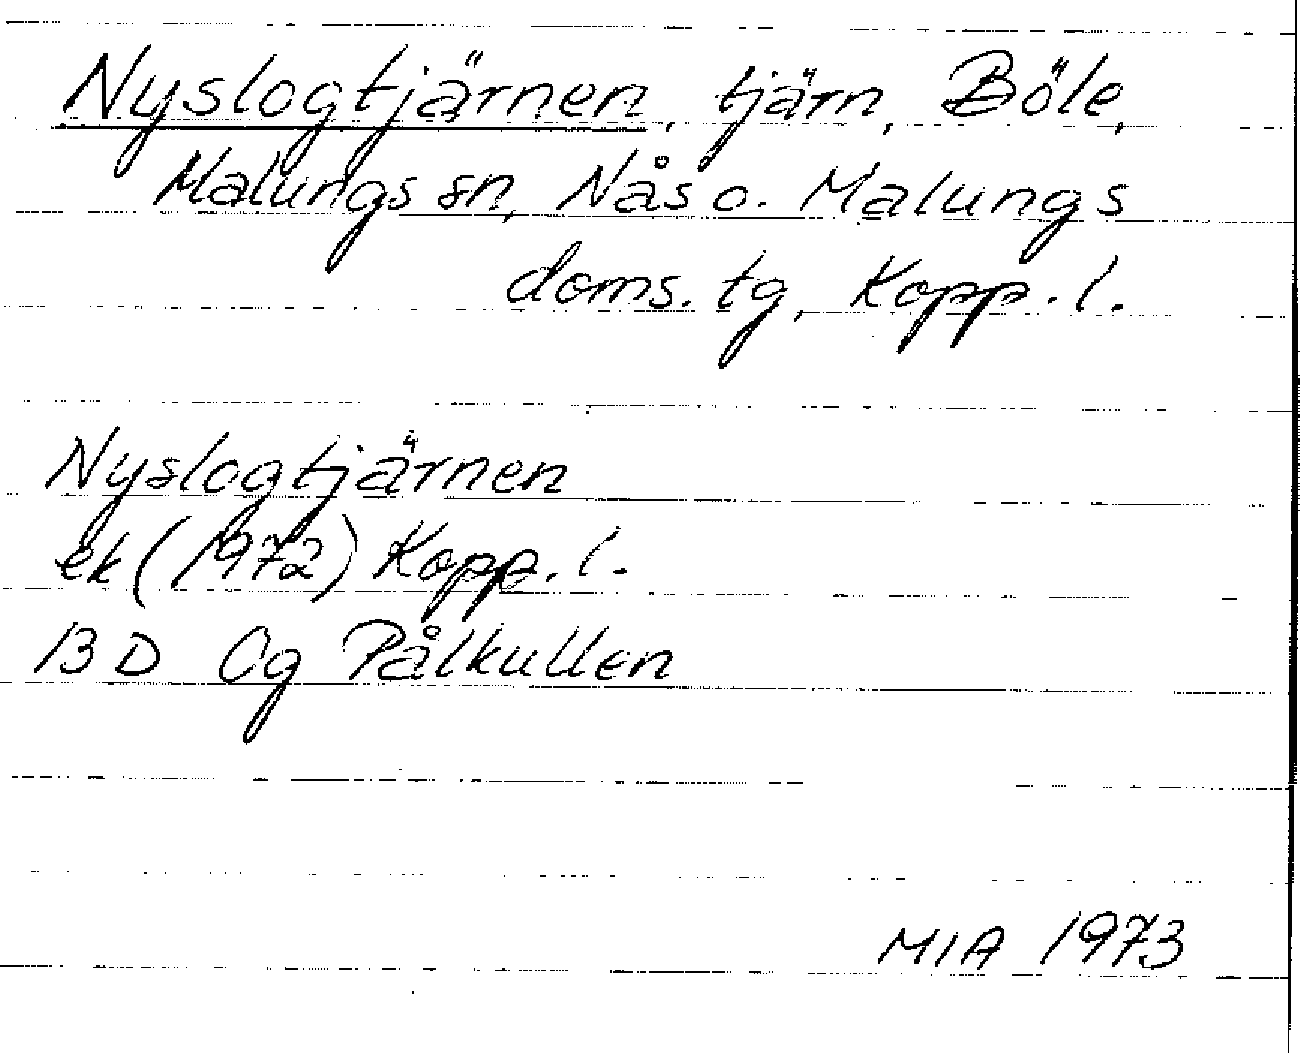 Nyslogtjärnen, tjärn, Böle,
Malungs sn, Nås o. Malungs
doms. tg, Kopp. l.
Nyslogtjärnen
ek (1972) Kopp. l.
13 D Og Pålkullen
MIA 1973